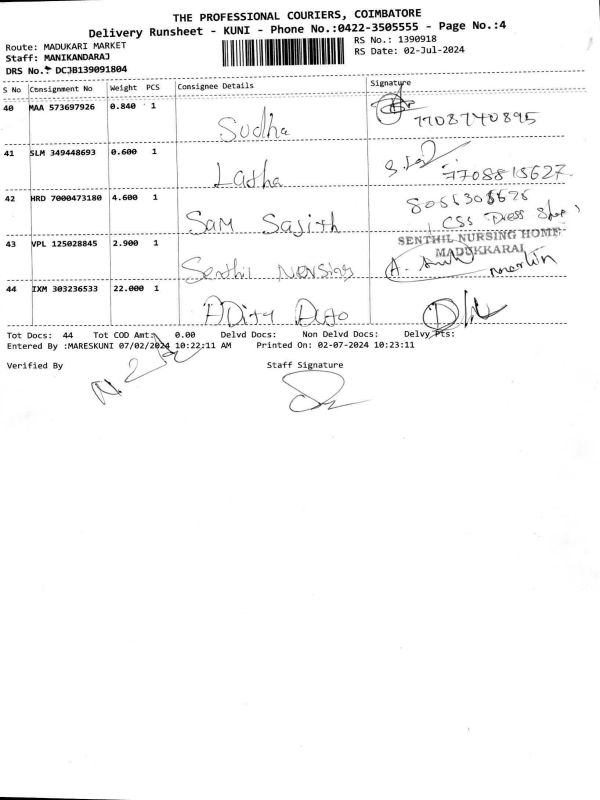 THE PROFESSIONAL COURIERS, COIMBATORE
Delivery Runsheet - KUNI - Phone No.:0422-3505555 - Page No.:4
Route: MADUKARI MARKET
RS No.: 1390918
Staff: MANIKANDARAJ
RS Date: 02-Jul-2024
DRS No.: DCJB139091804
S No Consignment No Weight PCS Consignee Details Signature
40 MAA 573697926 0.840 1 Sudha 7708740895
41 SLM 349448693 0.600 1 Latha 7708815627
42 HRD 7000473180 4.600 1 Sam Sajith
CSS Press Shop
43 VPL 125028845 2.900 1 Senthil Nursing
SENTHIL NURSING HOME
MADUKKARAI
44 IXM 303236533 22.000 1 Auto
Tot Docs: 44 Tot COD Amt: 0.00 Delvd Docs: Non Delvd Docs: Delvy Pts:
Entered By :MARESKUNI 07/02/2024 10:22:11 AM Printed On: 02-07-2024 10:23:11
Verified By Staff Signature